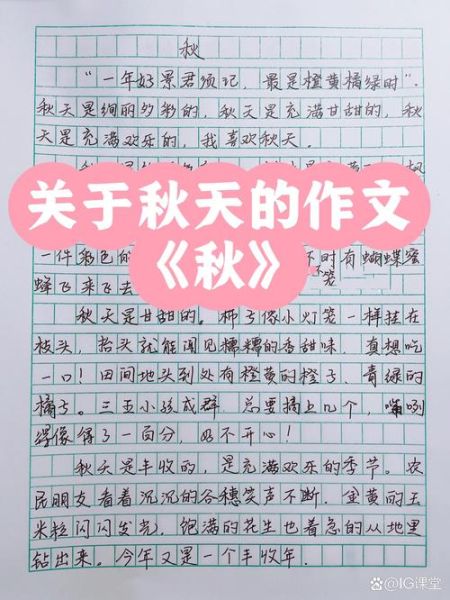 秋
“一年好景君须记，最是橙黄橘绿时”.
秋天是绚丽多彩的，秋天是充满甘甜的，秋
天是充满欢乐的，我喜欢秋天.
关于秋天的作文
《秋》
一件彩色的 时有蝴蝶蜜
蜂飞来飞去
秋天是甘甜的。柿子像小灯笼一样挂在
枝头，抬头就能闻见糯糯的香甜味，真想吃
一口！田间地头到处有橙黄的橙子、青绿的
橘子。三五小孩成群，总要摘上几个，嘴咧
得像得了一百分，好不开心！
秋天是丰收的，是充满欢乐的季节。农
民朋友看着沉沉的谷穗笑声不断，金黄的玉
米粒闪闪发光，饱满的花生也着急的从地里
钻出来。今年又是一个丰收年.
@IG课堂